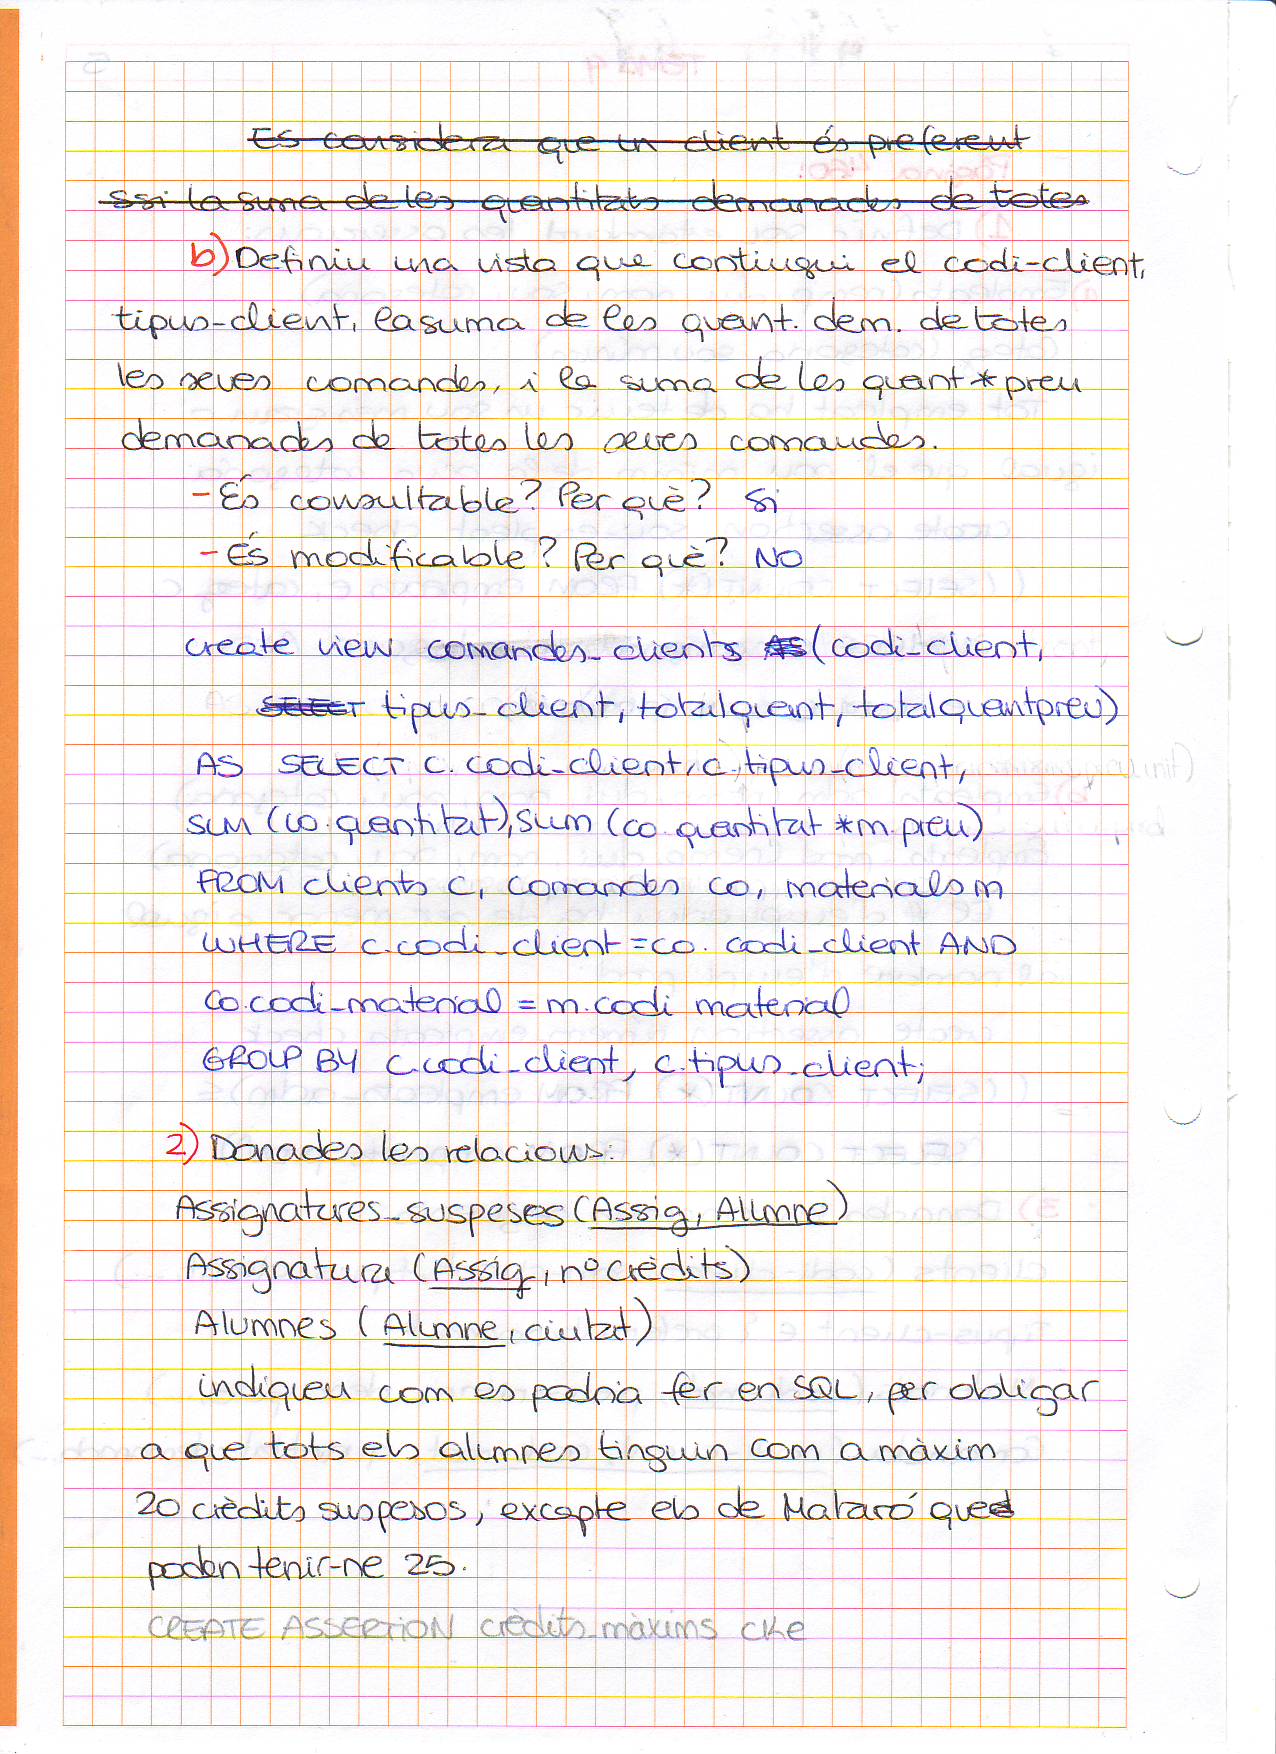 Es considera que un client és preferent
ssi la suma de les quantitats demanades de totes
b) Definiu una vista que contingui el codi-client,
tipus-client, la suma de les quant. dem. de totes
les seves comandes, i la suma de les quant * preu
demanades de totes les seves comandes.
- És consultable? Per què? Sí
- És modificable? Per què? NO
create view comandes_clients AS (codi_client,
SELECT tipus_client, totalquant, totalquantpreu)
AS SELECT c.codi_client, c.tipus_client,
SUM (co.quantitat), sum (co.quantitat * m.preu)
FROM clients c, comandes co, materials m
WHERE c.codi_client = co.codi_client AND
co.codi_material = m.codi material
GROUP BY c.codi_client, c.tipus_client;
2) Donades les relacions:
Assignatures_suspeses (Assig, Alumne)
Assignatura (Assig, nº crèdits)
Alumnes (Alumne, ciutat)
indiqueu com es podria fer en SQL, per obligar
a que tots els alumnes tinguin com a màxim
20 crèdits suspesos, excepte els de Mataró que
poden tenir-ne 25.
CREATE ASSERTION crèdits_màxims che